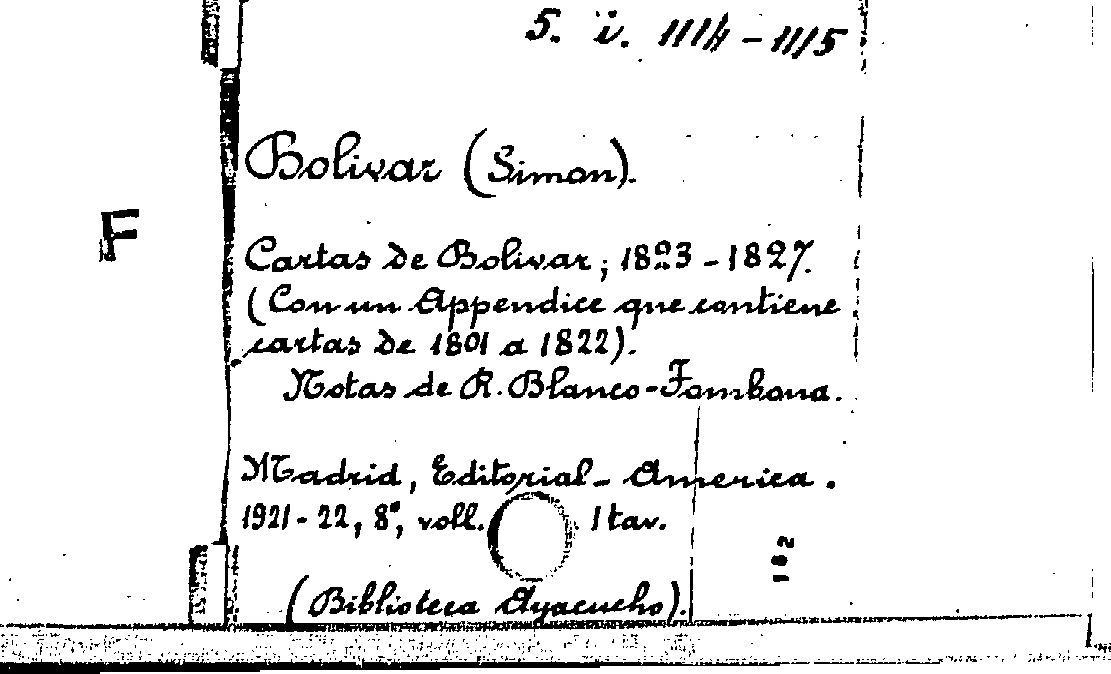 5. i. 1114-1115
Bolivar (Simon).
F
Cartas de Bolivar; 1823-1827.
(Con un Appendice que contiene
cartas de 1801 a 1822).
Notas de R. Blanco-Fombona.
Madrid, Editorial-America.
1921-22, 8°, voll. 1 tav.
182
(Biblioteca Ayacucho).